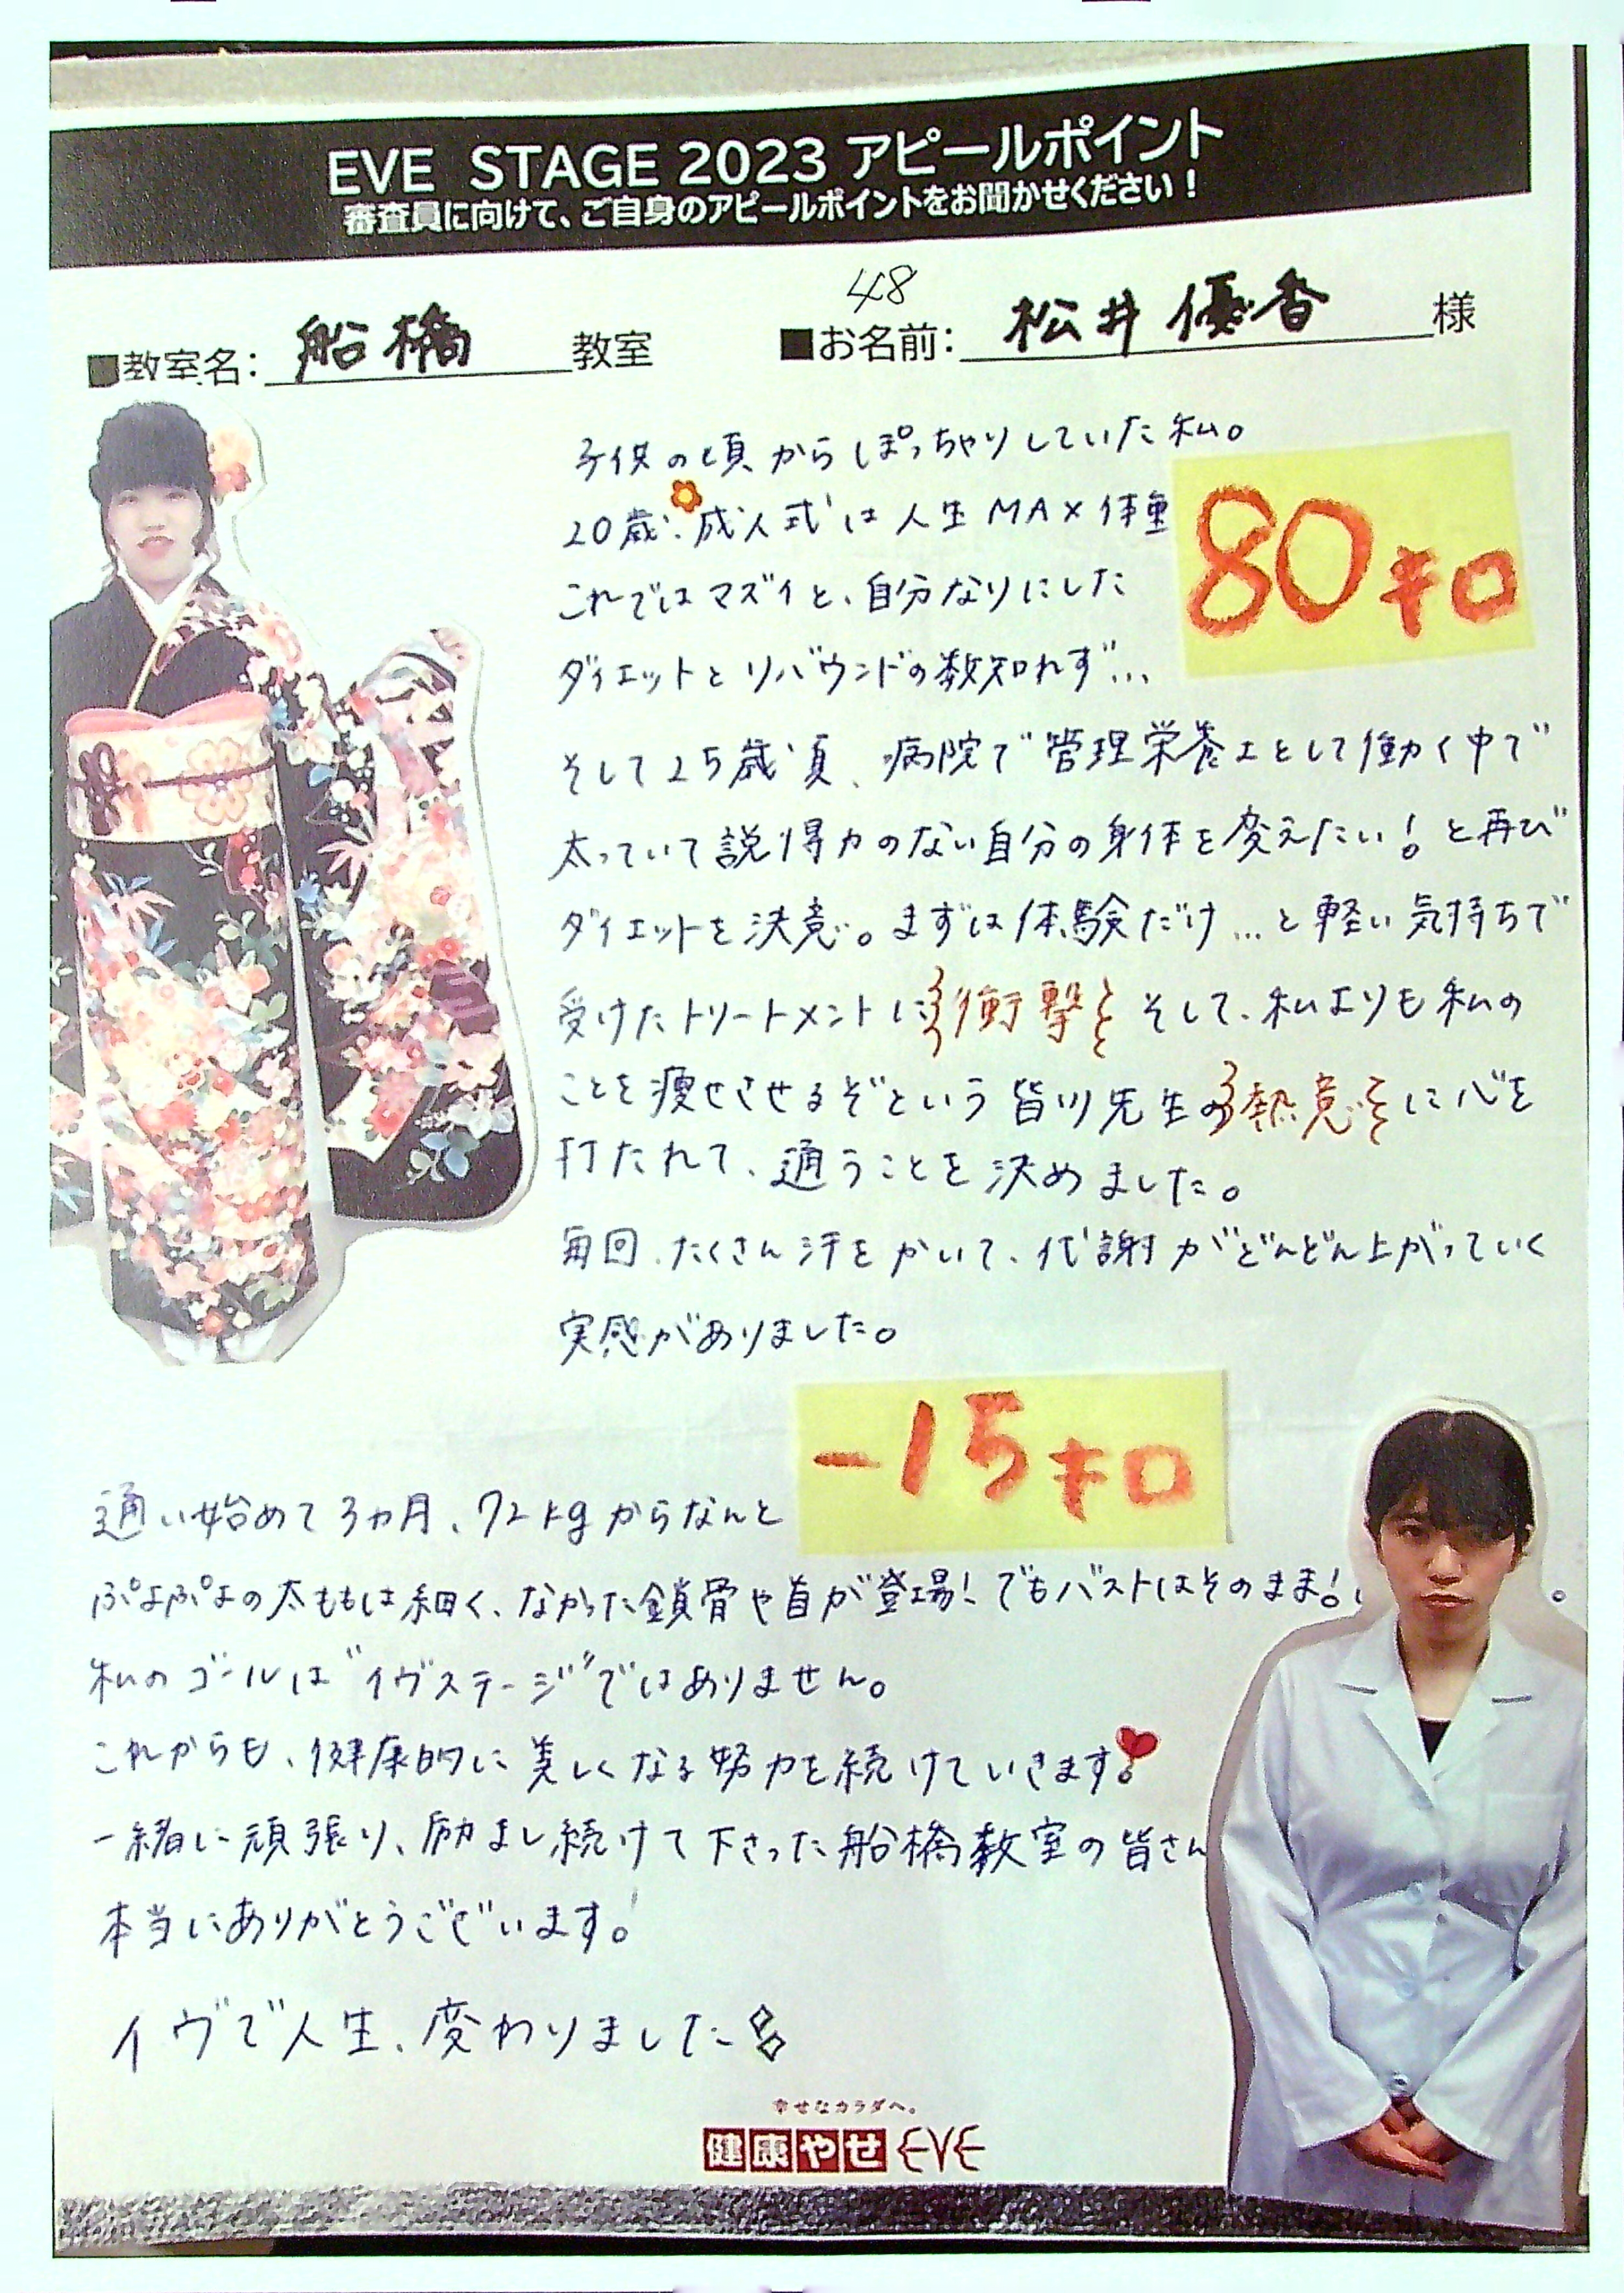 EVE STAGE 2023 アピールポイント
審査員に向けて、ご自身のアピールポイントをお聞かせください！
48
■教室名: 船橋 教室 ■お名前: 松井優香 様
子供の頃からぽっちゃりしていた私。
20歳、成人式は人生MAX体重 80キロ
これではマズイと、自分なりにした
ダイエットとリバウンドの数知れず…
そして25歳頃、病院で管理栄養士として働く中で
太っていて説得力のない自分の身体を変えたい！と再び
ダイエットを決意。まずは体験だけ…と軽い気持ちで
受けたトリートメントに衝撃 そして、私よりも私の
ことを痩せさせるぞという皆川先生の熱意に心を
打たれて、通うことを決めました。
毎回、たくさん汗をかいて、代謝がどんどん上がっていく
実感がありました。
通い始めて3ヵ月、72kgからなんと -15キロ
ぷよぷよの太ももは細く、なかった鎖骨や首が登場！でもバストはそのまま！
私のゴールは"イヴステージ"ではありません。
これからも、健康的に美しくなる努力を続けていきます
一緒に頑張り、励まし続けて下さった船橋教室の皆さん
本当にありがとうございます！
イヴで人生、変わりました
幸せなカラダへ。
健康やせ EVE